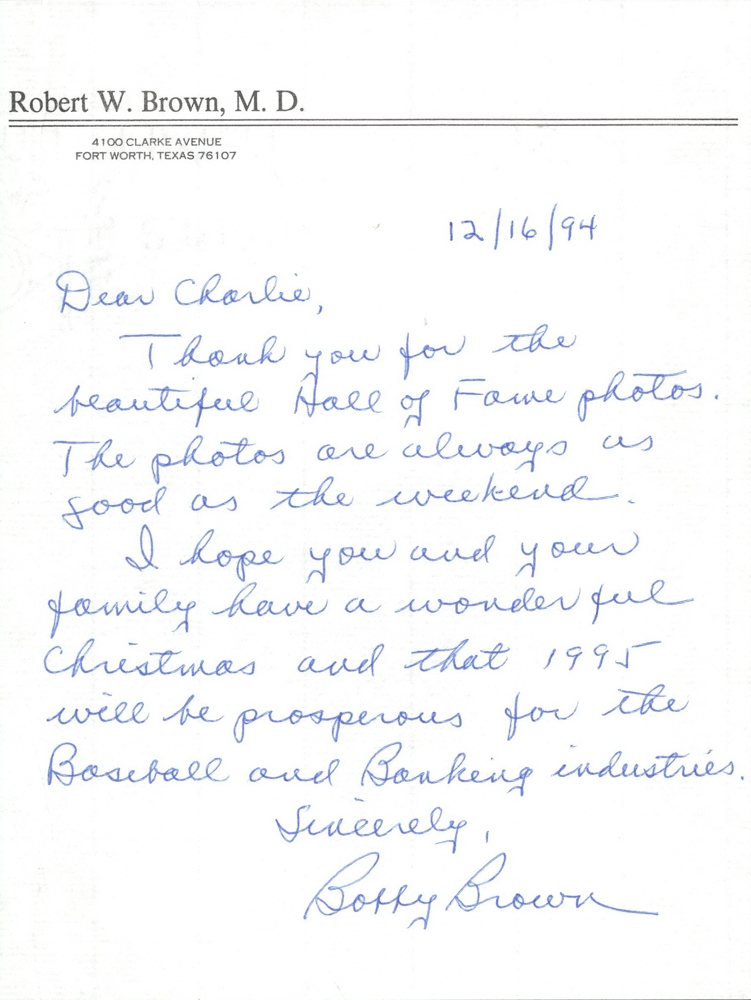 Robert W. Brown, M. D.
4100 CLARKE AVENUE
FORT WORTH, TEXAS 76107
12/16/94
Dear Charlie,
Thank you for the
beautiful Hall of Fame photos.
The photos are always as
good as the weekend.
I hope you and your
family have a wonderful
Christmas and that 1995
will be prosperous for the
Baseball and Banking industries.
Sincerely,
Bobby Brown